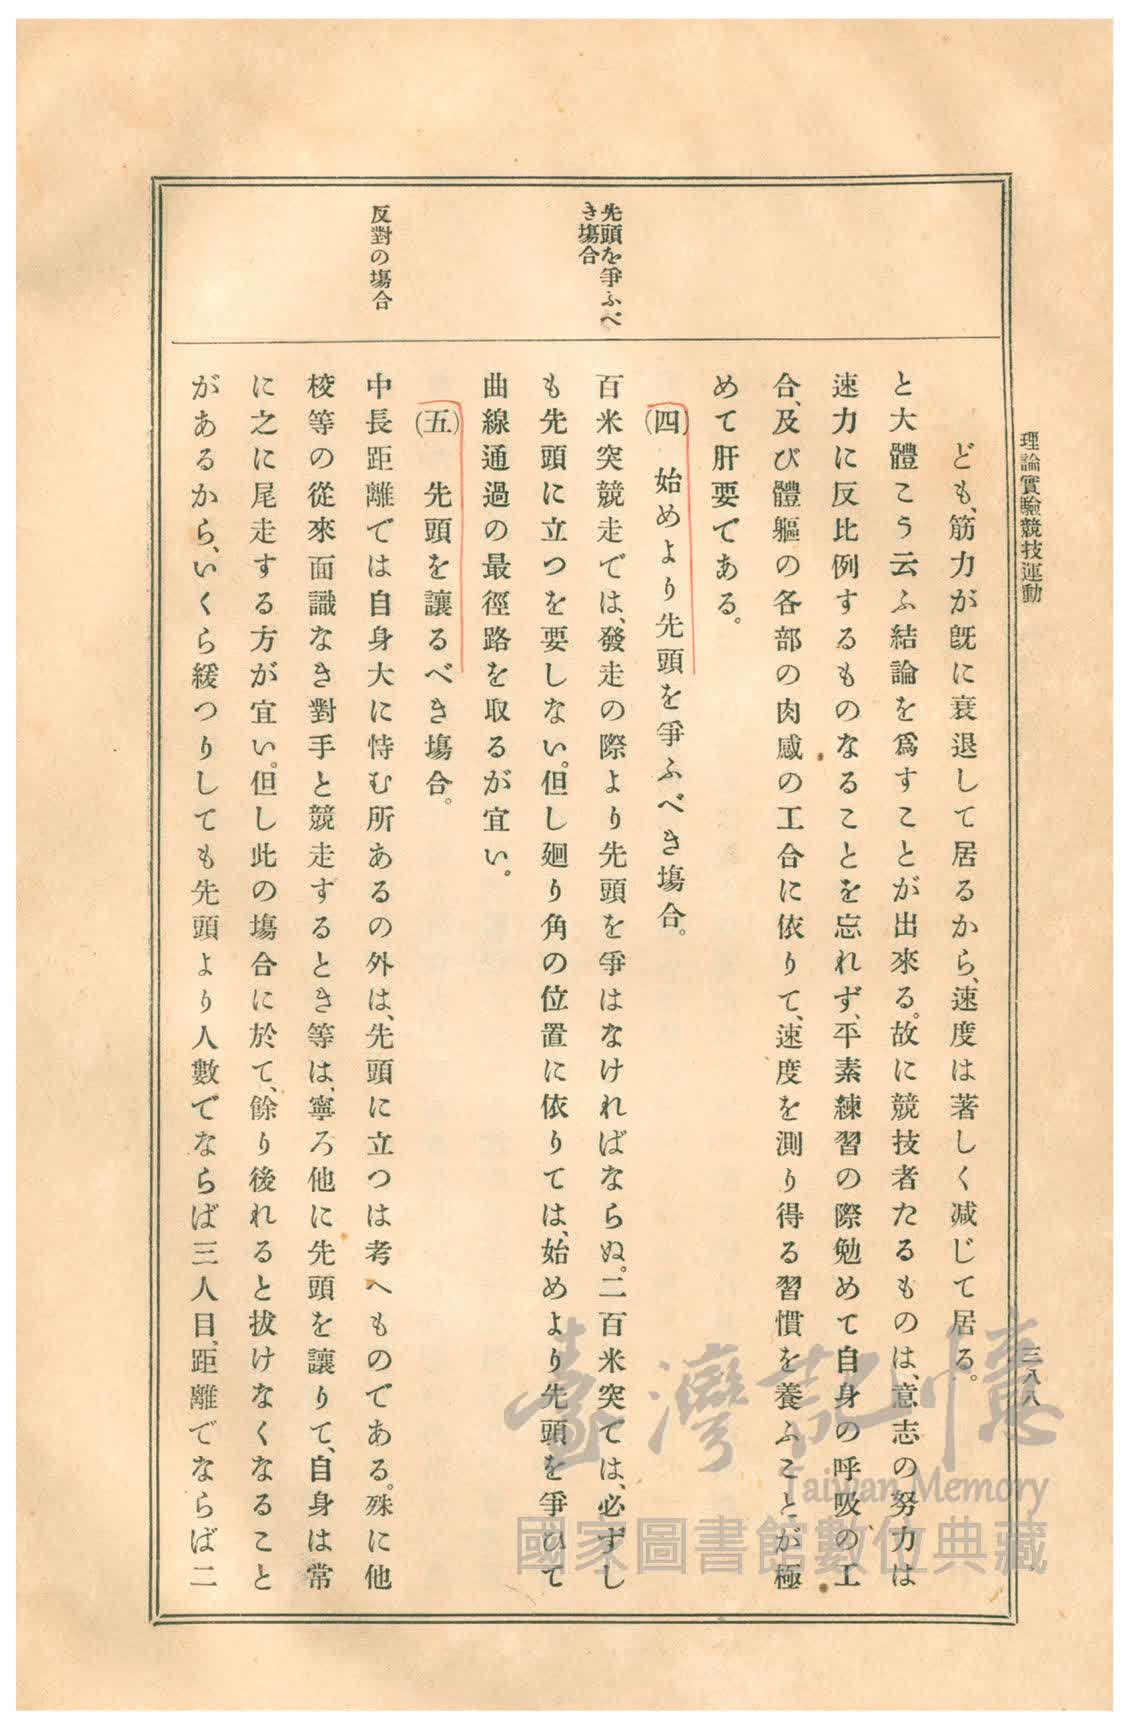 理論實驗競技運動
三八八
先頭を爭ふべ
き塲合
反對の塲合
ども、筋力が旣に衰退して居るから、速度は著しく減じて居る。
と大體こう云ふ結論を爲すことが出來る。故に競技者たるものは、意志の努力は
速力に反比例するものなることを忘れず、平素練習の際勉めて自身の呼吸の工
合、及び體軀の各部の肉感の工合に依りて、速度を測り得る習慣を養ふことが極
めて肝要である。
(四) 始めより先頭を爭ふべき塲合。
百米突競走では、發走の際より先頭を爭はなければならぬ。二百米突では、必ずし
も先頭に立つを要しない。但し廻り角の位置に依りては、始めより先頭を爭ひて
曲線通過の最徑路を取るが宜い。
(五) 先頭を讓るべき塲合。
中長距離では自身大に恃む所あるの外は、先頭に立つは考へものである。殊に他
校等の從來面識なき對手と競走するとき等は、寧ろ他に先頭を讓りて、自身は常
に之に尾走する方が宜い。但し此の塲合に於て、餘り後れると拔けなくなること
があるから、いくら緩つりしても先頭より人數でならば三人目、距離でならば二
臺灣記憶
Taiwan Memory
國家圖書館數位典藏